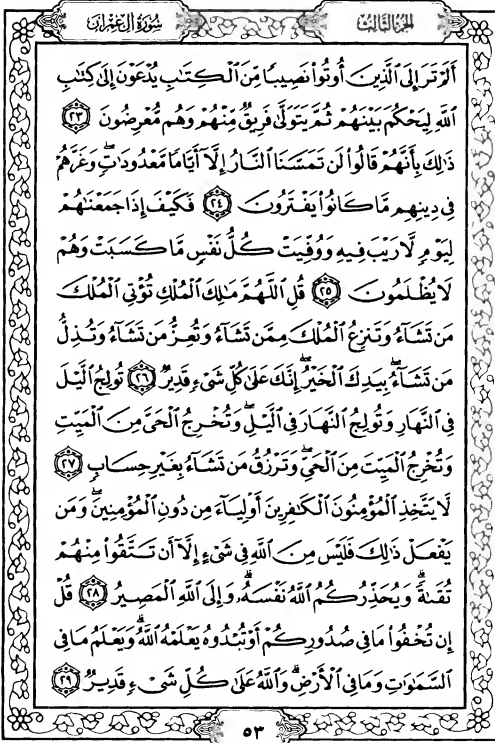 سُورَةُ آلِ عِمْرَان
الجزء الثالث
أَلَمْ تَرَ إِلَى ٱلَّذِينَ أُوتُوا۟ نَصِيبًا مِّنَ ٱلْكِتَٰبِ يُدْعَوْنَ إِلَىٰ كِتَٰبِ
ٱللَّهِ لِيَحْكُمَ بَيْنَهُمْ ثُمَّ يَتَوَلَّىٰ فَرِيقٌ مِّنْهُمْ وَهُم مُّعْرِضُونَ ٢٣
ذَٰلِكَ بِأَنَّهُمْ قَالُوا۟ لَن تَمَسَّنَا ٱلنَّارُ إِلَّآ أَيَّامًا مَّعْدُودَٰتٍ ۖ وَغَرَّهُمْ
فِى دِينِهِم مَّا كَانُوا۟ يَفْتَرُونَ ٢٤ فَكَيْفَ إِذَا جَمَعْنَٰهُمْ
لِيَوْمٍ لَّا رَيْبَ فِيهِ وَوُفِّيَتْ كُلُّ نَفْسٍ مَّا كَسَبَتْ وَهُمْ
لَا يُظْلَمُونَ ٢٥ قُلِ ٱللَّهُمَّ مَٰلِكَ ٱلْمُلْكِ تُؤْتِى ٱلْمُلْكَ
مَن تَشَآءُ وَتَنزِعُ ٱلْمُلْكَ مِمَّن تَشَآءُ وَتُعِزُّ مَن تَشَآءُ وَتُذِلُّ
مَن تَشَآءُ ۖ بِيَدِكَ ٱلْخَيْرُ ۖ إِنَّكَ عَلَىٰ كُلِّ شَىْءٍ قَدِيرٌ ٢٦ تُولِجُ ٱلَّيْلَ
فِى ٱلنَّهَارِ وَتُولِجُ ٱلنَّهَارَ فِى ٱلَّيْلِ ۖ وَتُخْرِجُ ٱلْحَىَّ مِنَ ٱلْمَيِّتِ
وَتُخْرِجُ ٱلْمَيِّتَ مِنَ ٱلْحَىِّ ۖ وَتَرْزُقُ مَن تَشَآءُ بِغَيْرِ حِسَابٍ ٢٧
لَّا يَتَّخِذِ ٱلْمُؤْمِنُونَ ٱلْكَٰفِرِينَ أَوْلِيَآءَ مِن دُونِ ٱلْمُؤْمِنِينَ ۖ وَمَن
يَفْعَلْ ذَٰلِكَ فَلَيْسَ مِنَ ٱللَّهِ فِى شَىْءٍ إِلَّآ أَن تَتَّقُوا۟ مِنْهُمْ
تُقَىٰةً ۗ وَيُحَذِّرُكُمُ ٱللَّهُ نَفْسَهُۥ ۗ وَإِلَى ٱللَّهِ ٱلْمَصِيرُ ٢٨ قُلْ
إِن تُخْفُوا۟ مَا فِى صُدُورِكُمْ أَوْ تُبْدُوهُ يَعْلَمْهُ ٱللَّهُ ۗ وَيَعْلَمُ مَا فِى
ٱلسَّمَٰوَٰتِ وَمَا فِى ٱلْأَرْضِ ۗ وَٱللَّهُ عَلَىٰ كُلِّ شَىْءٍ قَدِيرٌ ٢٩
٥٣